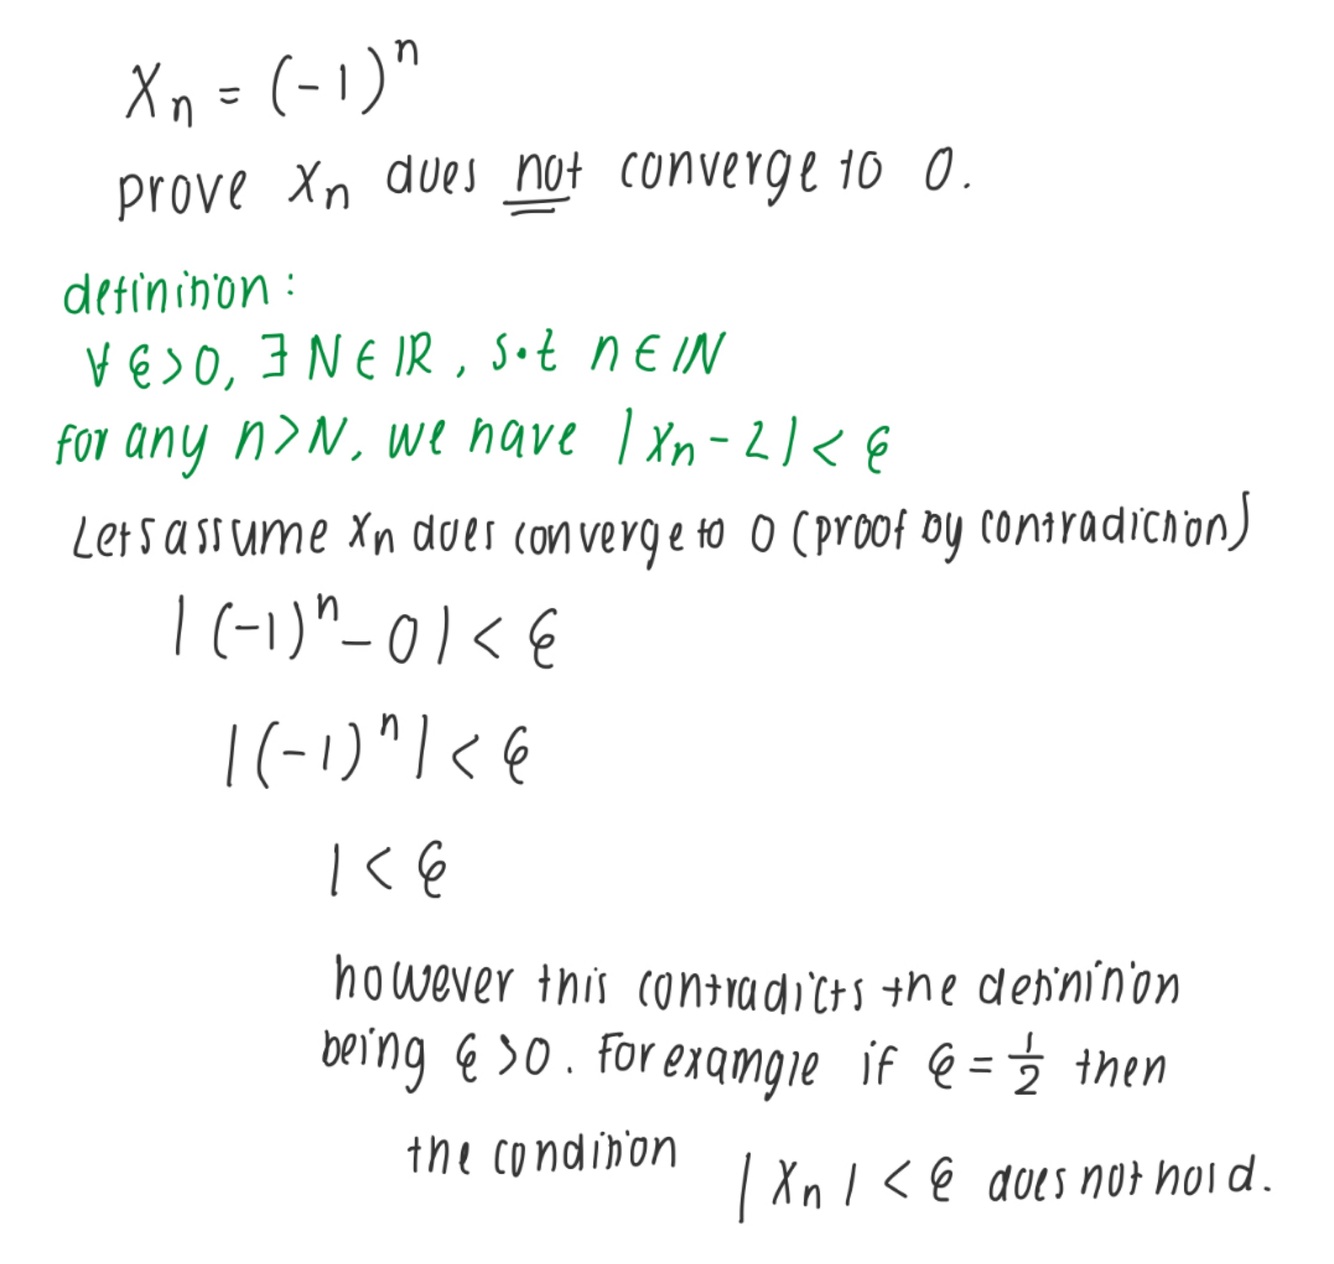 Xn = (-1)^n
prove Xn does not converge to 0.
definition:
∀ ϵ>0, ∃ N ∈ ℝ, s.t n ∈ ℕ
for any n>N, we have |Xn - L| < ϵ
Lets assume Xn does converge to 0 (proof by contradiction)
|(-1)^n - 0| < ϵ
|(-1)^n| < ϵ
1 < ϵ
however this contradicts the definition
being ϵ >0. For example if ϵ = 1/2 then
the condition |Xn| < ϵ does not hold.